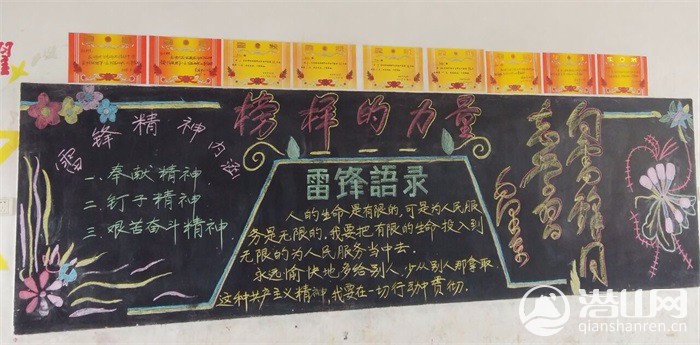 榜样的力量
雷锋精神内涵
一.奉献精神
二.钉子精神
三.艰苦奋斗精神
雷锋語录
人的生命是有限的,可是为人民服
务是无限的,我要把有限的生命,投入到
无限的为人民服务当中去.
永远愉快地多给别人,少从别人那拿取.
这种共产主义精神,我要在一切行动中贯彻.
向雷锋同
志学习
毛泽东
潜山网
qianshanren.cn